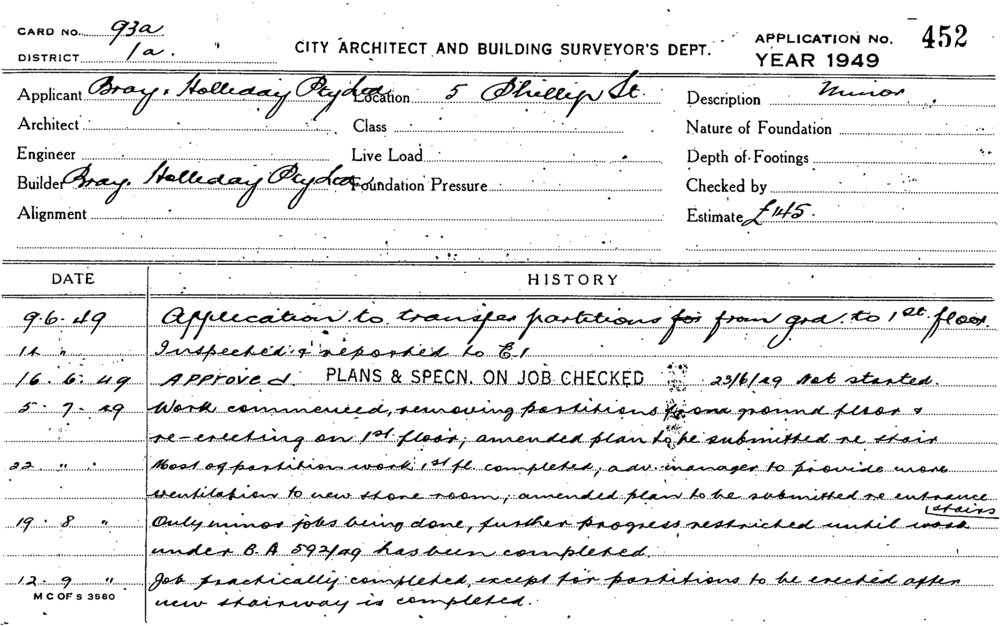 CARD NO. 93a
DISTRICT 1a.
CITY ARCHITECT AND BUILDING SURVEYOR'S DEPT.
APPLICATION NO. 452
YEAR 1949
Applicant Bray. Holliday Pty Ltd Location 5 Phillip St. Description Minor
Architect Class Nature of Foundation
Engineer Live Load Depth of Footings
Builder Bray. Holliday Pty Ltd Foundation Pressure Checked by
Alignment Estimate £145.
DATE HISTORY
9.6.49 Application to transfer partitions for from grd. to 1st floor.
14 " Inspected & reported to E.1
16.6.49 Approved PLANS & SPECN. ON JOB CHECKED 23/6/49 Not started.
5.7.49 Work commenced, removing partitions from ground floor &
re-erecting on 1st floor, amended plan to be submitted re stair
22 " " Most of partition work 1st fl. completed, adv. manager to provide more
ventilation to new store room, amended plan to be submitted re entrance
stairs
19.8 " Only minor jobs being done, further progress restricted until work
under B.A 592/49 has been completed.
12.9 " Job practically completed, except for partitions to be erected after
new stairway is completed.
M C OF S 3580